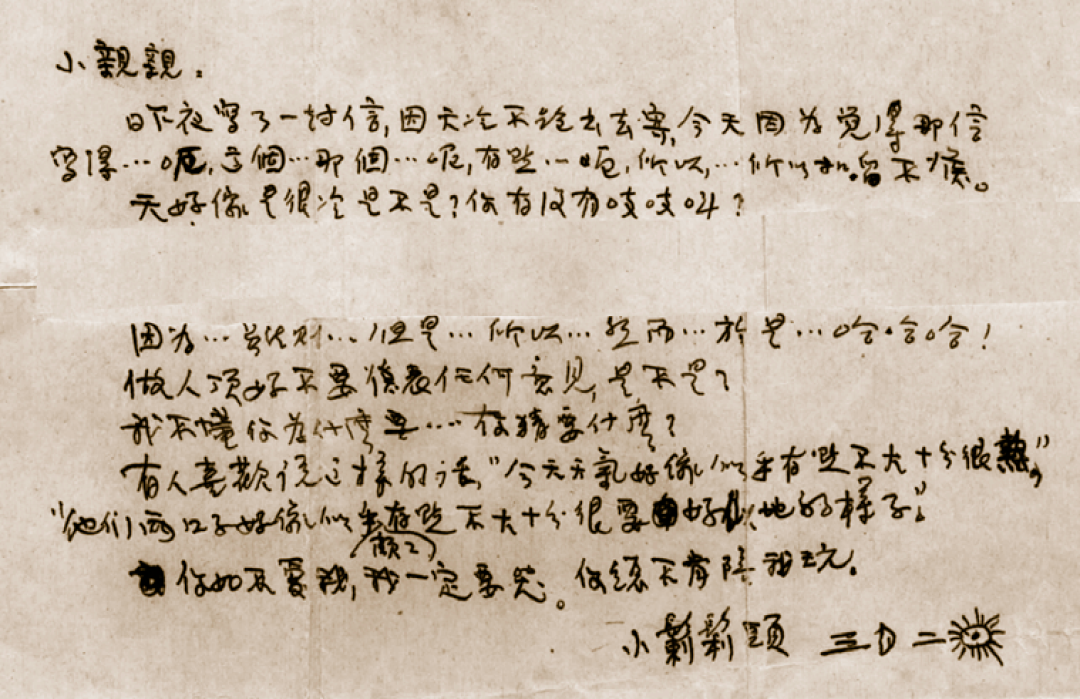 小親親。
昨夜寫了一封信,因天冷不跑出去寄,今天因为觉得那信
寫得…呃,这個…那個…呢,有些…呃,所以,…所以扣留不發。
天好像是很冷是不是?你有没有吱吱叫?
因为…雖则…但是…所以…然而…於是…哈哈哈!
做人頂好不要發表任何意見,是不是?
我不懂你为什麼要…你猜要什麼?
有人喜歡说这樣的话"今天天氣好像似乎有些不大十分很熱",
"他们两口子好像似乎(頗頗)有些不大十分很要好似地的樣子"。
你如不愛我,我一定要哭。你總不肯陪我玩。
小鬎鬁頭 三月二